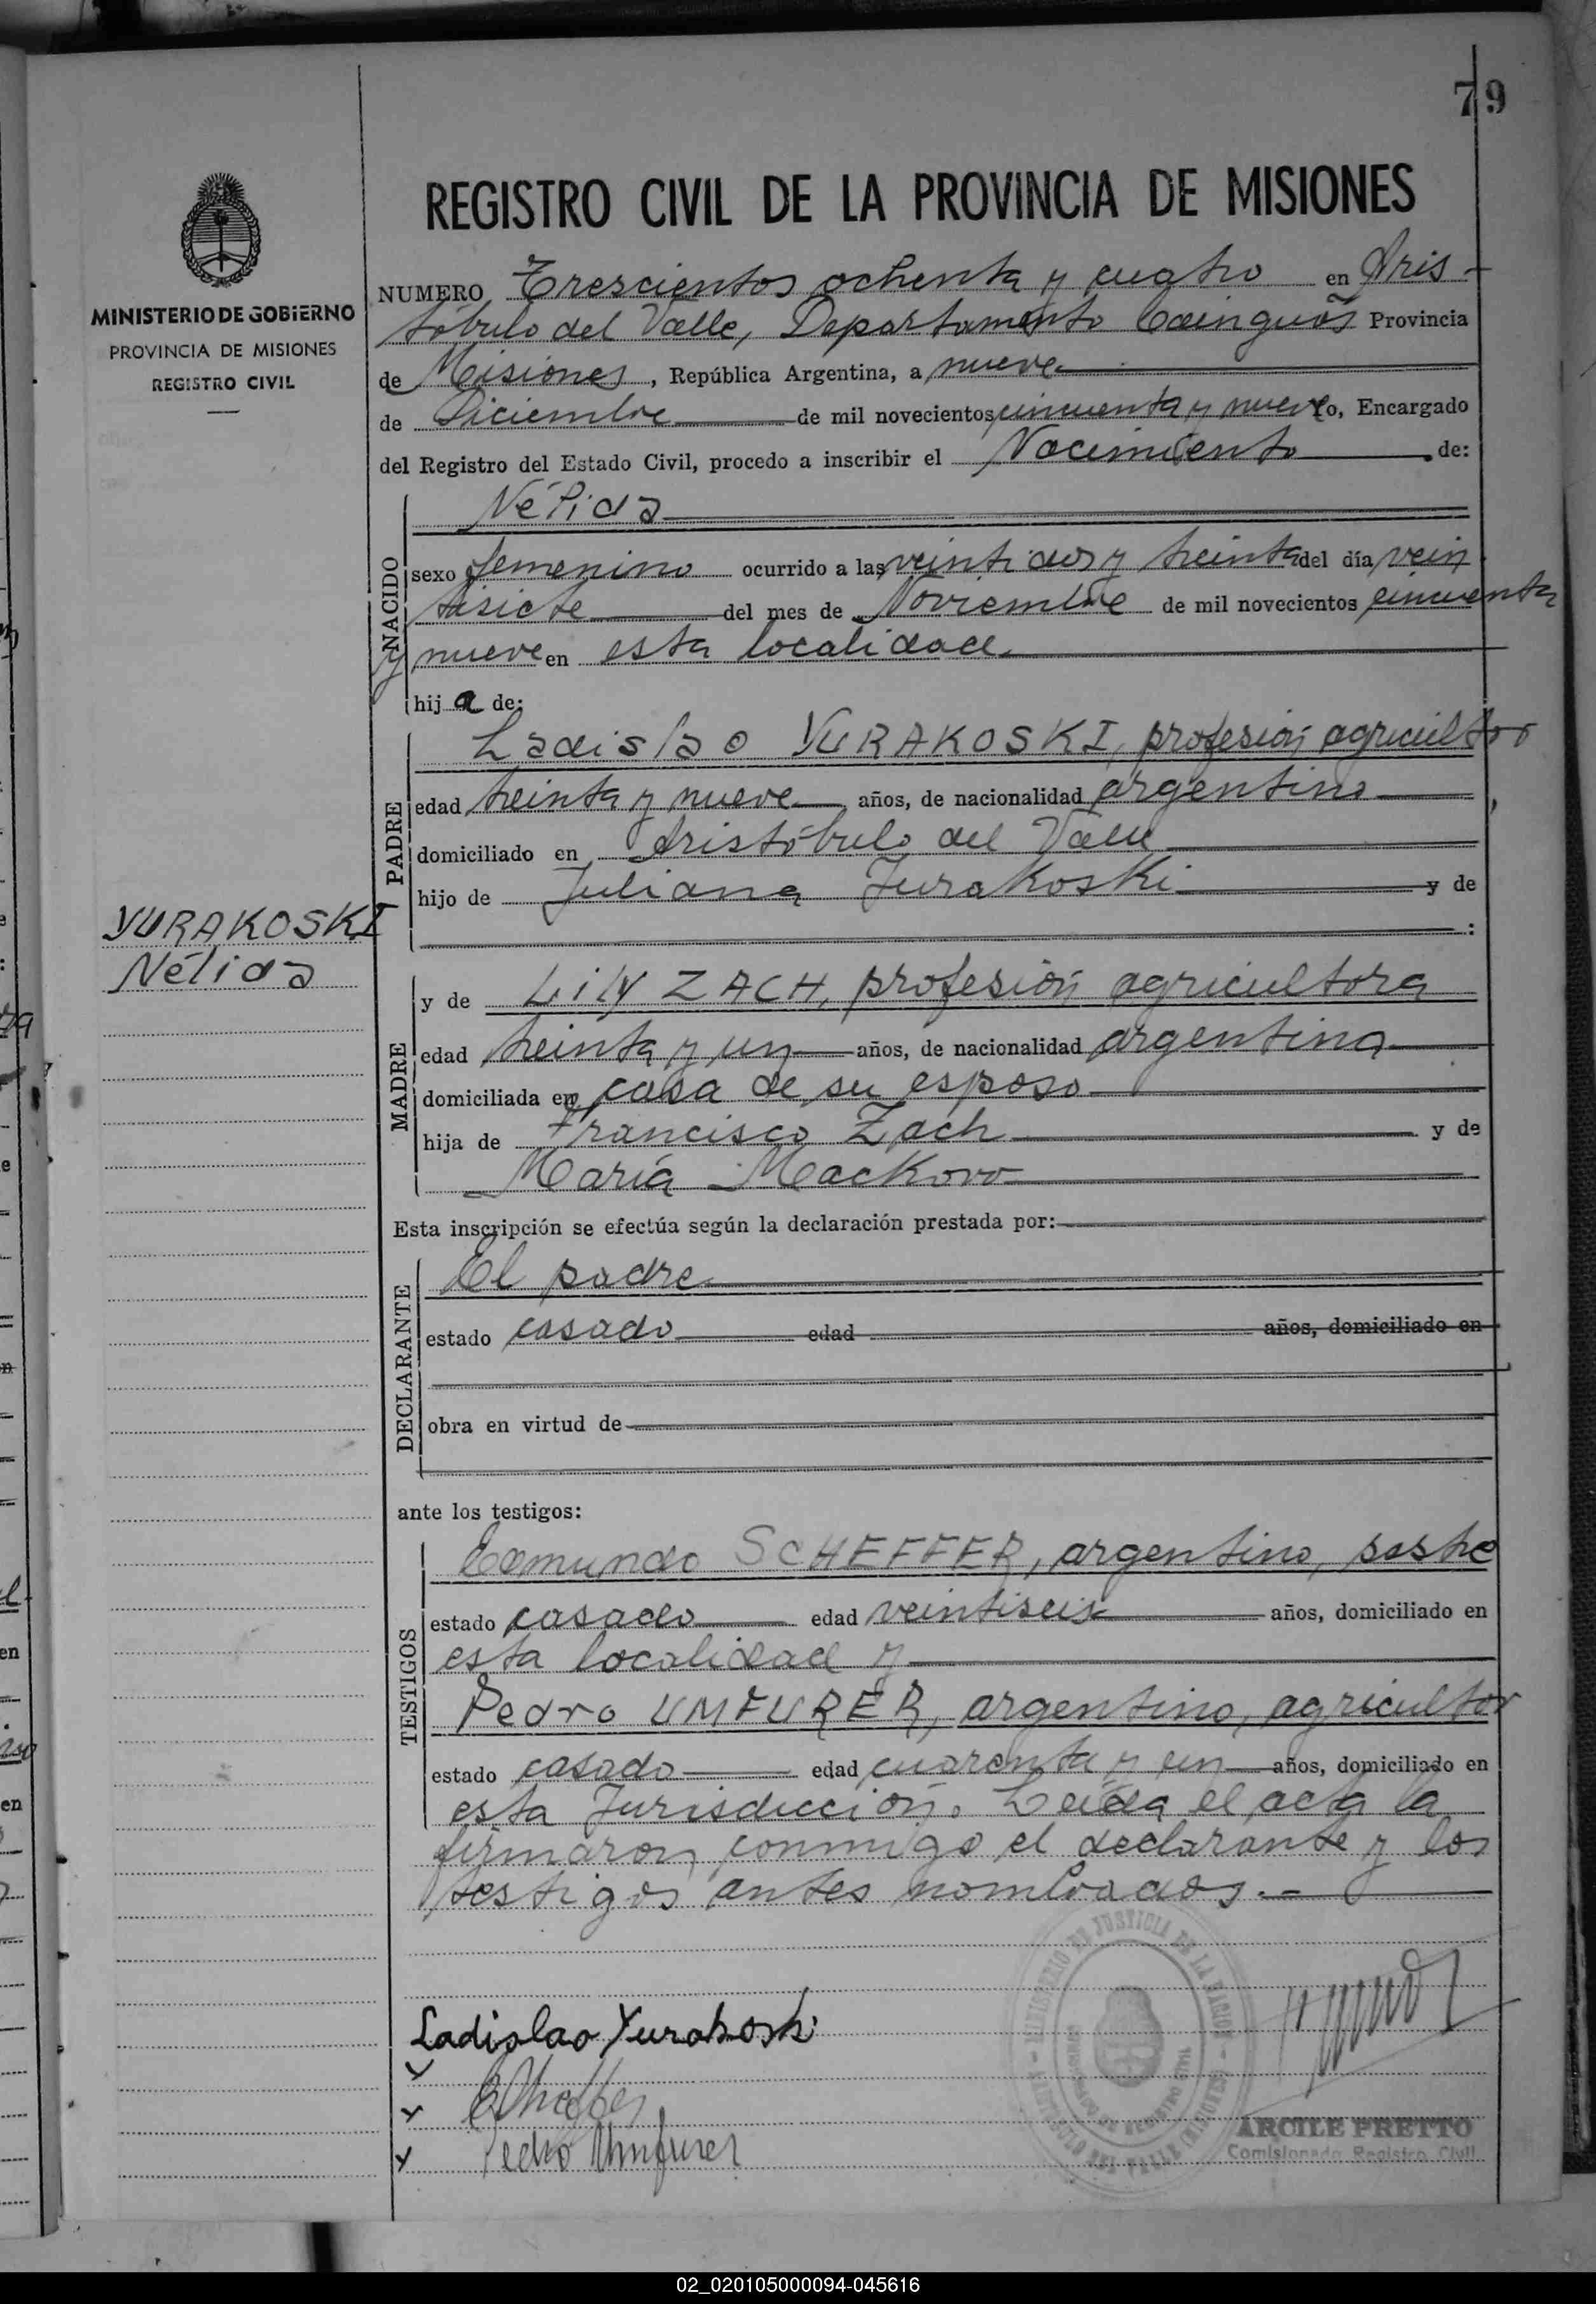 79
REGISTRO CIVIL DE LA PROVINCIA DE MISIONES
MINISTERIO DE GOBIERNO
PROVINCIA DE MISIONES
REGISTRO CIVIL
NUMERO Trescientos ochenta y cuatro en Aris-
tóbulo del Valle, Departamento Cainguás Provincia
de Misiones, República Argentina, a nueve
de Diciembre de mil novecientos cincuenta y nueve Yo, Encargado
del Registro del Estado Civil, procedo a inscribir el Nacimiento de:
NACIDO
Nélida
sexo femenino ocurrido a las veintidos y treinta del día vein
tisiete del mes de Noviembre de mil novecientos cincuenta
y nueve en esta localidad.
hija de:
PADRE
Ladislao YURAKOSKI, profesión agricultor
edad treinta y nueve años, de nacionalidad argentino
domiciliado en Aristóbulo del Valle
hijo de Juliana Jurakoski y de
:
YURAKOSKI
Nélida
MADRE
y de Lily ZACH, profesión agricultora
edad treinta y un años, de nacionalidad argentina
domiciliada en casa de su esposo
hija de Francisco Zach y de
María Mackovo
Esta inscripción se efectúa según la declaración prestada por:
DECLARANTE
El padre
estado casado edad años, domiciliado en
obra en virtud de
ante los testigos:
TESTIGOS
Edmundo SCHEFFER, argentino, sastre
estado casado edad veintiseis años, domiciliado en
esta localidad y
Pedro UMFURER, argentino, agricultor
estado casado edad cuarenta y un años, domiciliado en
esta Jurisdicción. Leída el acta la
firmaron conmigo el declarante y los
testigos antes nombrados.-
Ladislao Yurakoski
Pedro Umfurer
MINISTERIO DE JUSTICIA DE LA NACION
ARISTOBULO DEL VALLE (MISIONES)
ARCILE PRETTO
Comisionado Registro Civil
02_020105000094-045616